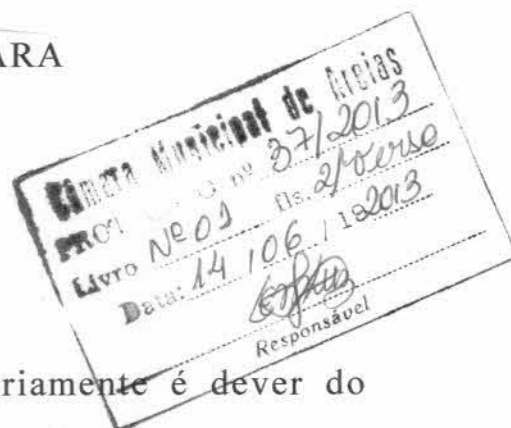 ARA
Câmara Municipal de Areias
PROT nº 37/2013
Livro Nº 01 Fls. 21 Verso
Data: 14 / 06 / 2013
Responsável
riamente é dever do